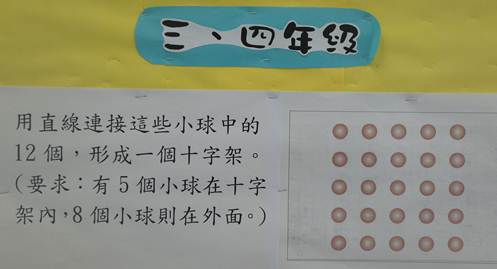 三、四年級
用直線連接這些小球中的
12個，形成一個十字架。
(要求：有5個小球在十字
架內，8個小球則在外面。)